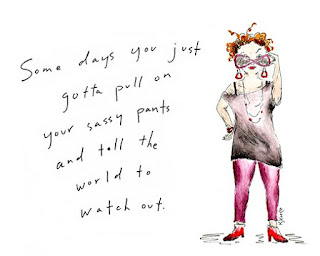 Some days you just
gotta pull on
your sassy pants
and tell the
world to
watch out.